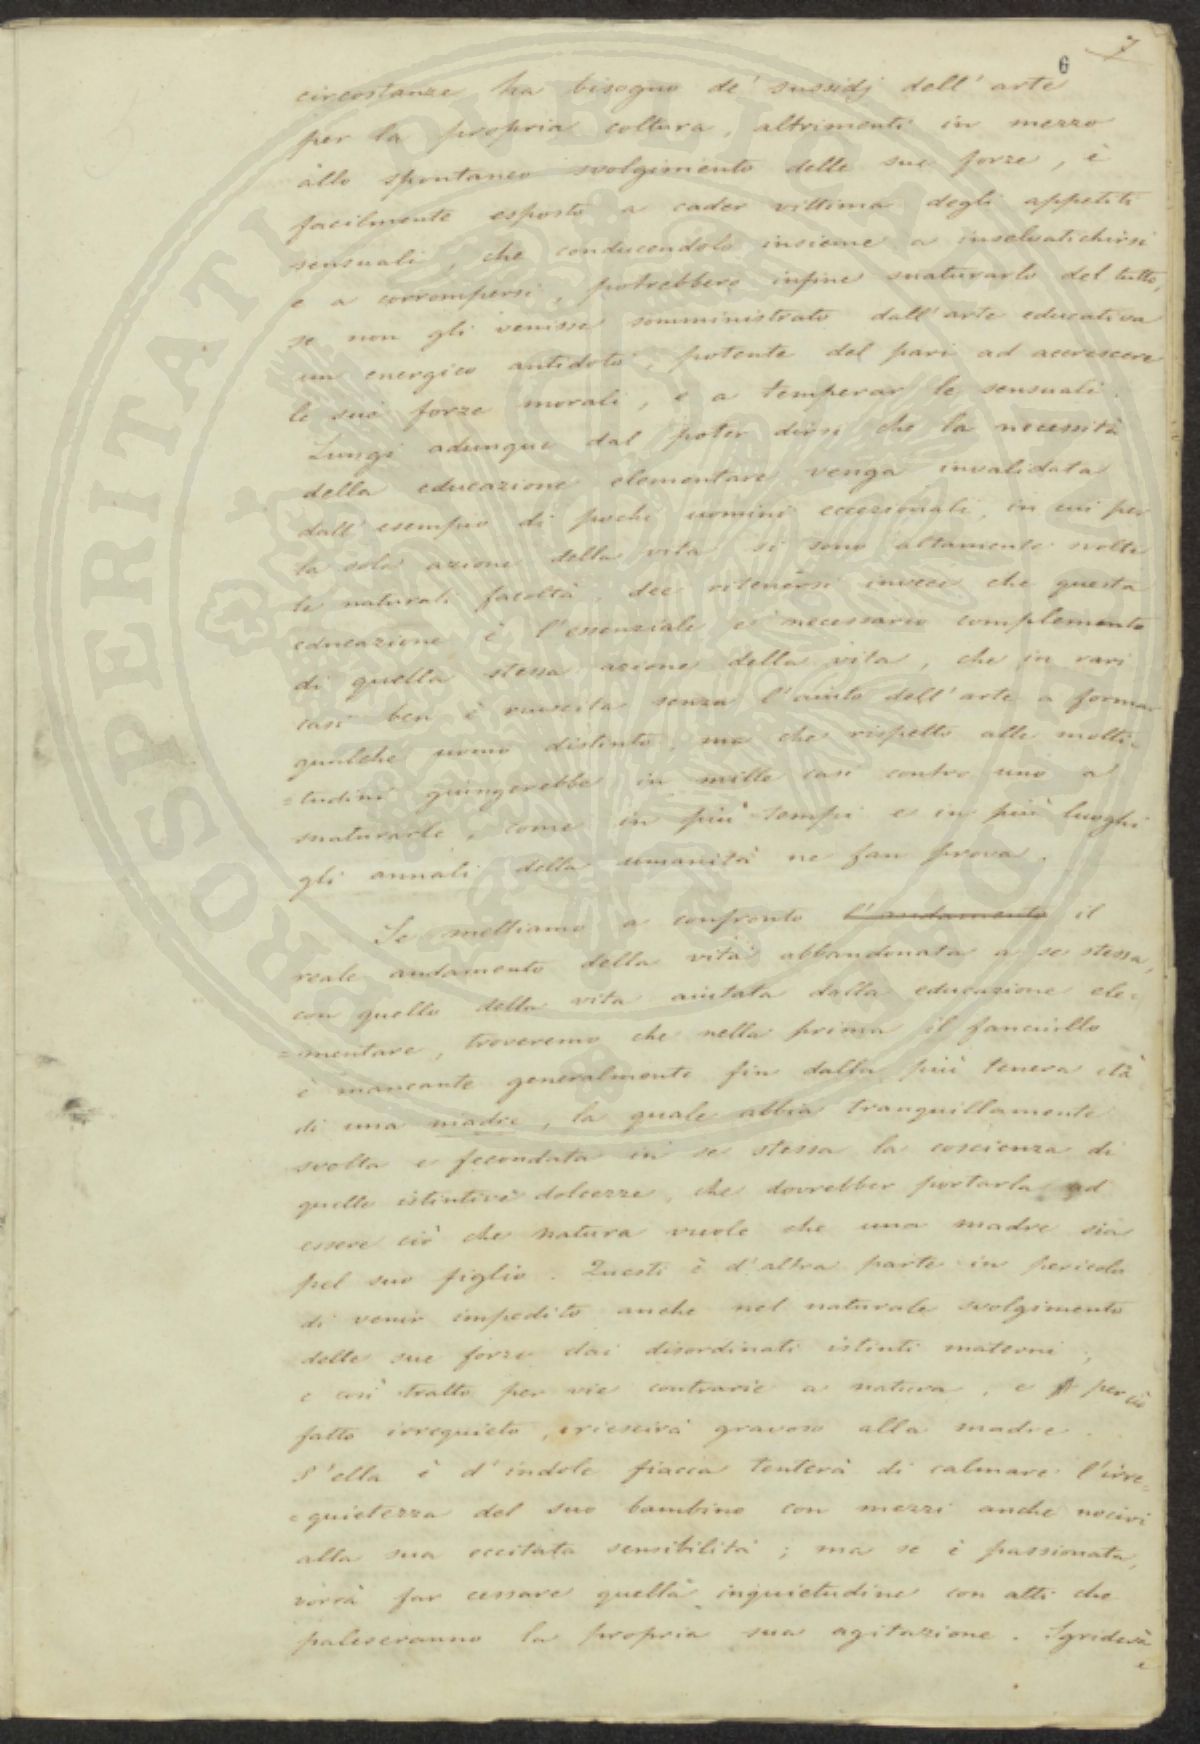 7
6
circostanze ha bisogno de' sussidj dell'arte
per la propria coltura, altrimenti in mezzo
allo spontaneo svolgimento delle sue forze, è
facilmente esposto a cader vittima degli appetiti
sensuali, che conducendolo insieme a inselvatichirsi
e a corrompersi, potrebbero infine snaturarlo del tutto,
se non gli venisse somministrato dall'arte educativa
un energico antidoto, potente del pari ad accrescere
le sue forze morali, e a temperar le sensuali.
Lungi adunque dal poter dirsi che la necessità
della educazione elementare venga invalidata
dall'esempio di pochi uomini eccezionali, in cui per
la sola azione della vita si sono altamente svolte
le naturali facoltà, dee ritenersi invece che questa
educazione è l'essenziale e necessario complemento
di quella stessa azione della vita, che in rari
casi ben è riuscita senza l'aiuto dell'arte a formar
qualche uomo distinto, ma che rispetto alle molti=
=tudini giungerebbe in mille casi contro uno a
snaturarle, come in più tempi e in più luoghi
gli annali della umanità ne fan prova.
Se mettiamo a confronto l'andamento il
reale andamento della vita abbandonata a se stessa,
con quello della vita aiutata dalla educazione ele=
=mentare, troveremo che nella prima il fanciullo
è mancante generalmente fin dalla più tenera età
di una madre, la quale abbia tranquillamente
svolta e fecondata in se stessa la coscienza di
quelle istintive dolcezze, che dovrebber portarla ad
essere ciò che natura vuole che una madre sia
pel suo figlio. Questi è d'altra parte in pericolo
di venir impedito anche nel naturale svolgimento
delle sue forze dai disordinati istinti materni;
e così tratto per vie contrarie a natura, e perciò
fatto irrequieto, riescirà gravoso alla madre.
S'ella è d'indole fiacca tenterà di calmare l'irre=
=quietezza del suo bambino con mezzi anche nocivi
alla sua eccitata sensibilità; ma se è passionata,
vorrà far cessare quella inquietudine con atti che
paleseranno la propria sua agitazione. Sgriderà
e
PROSPERITATI PUBLICAE